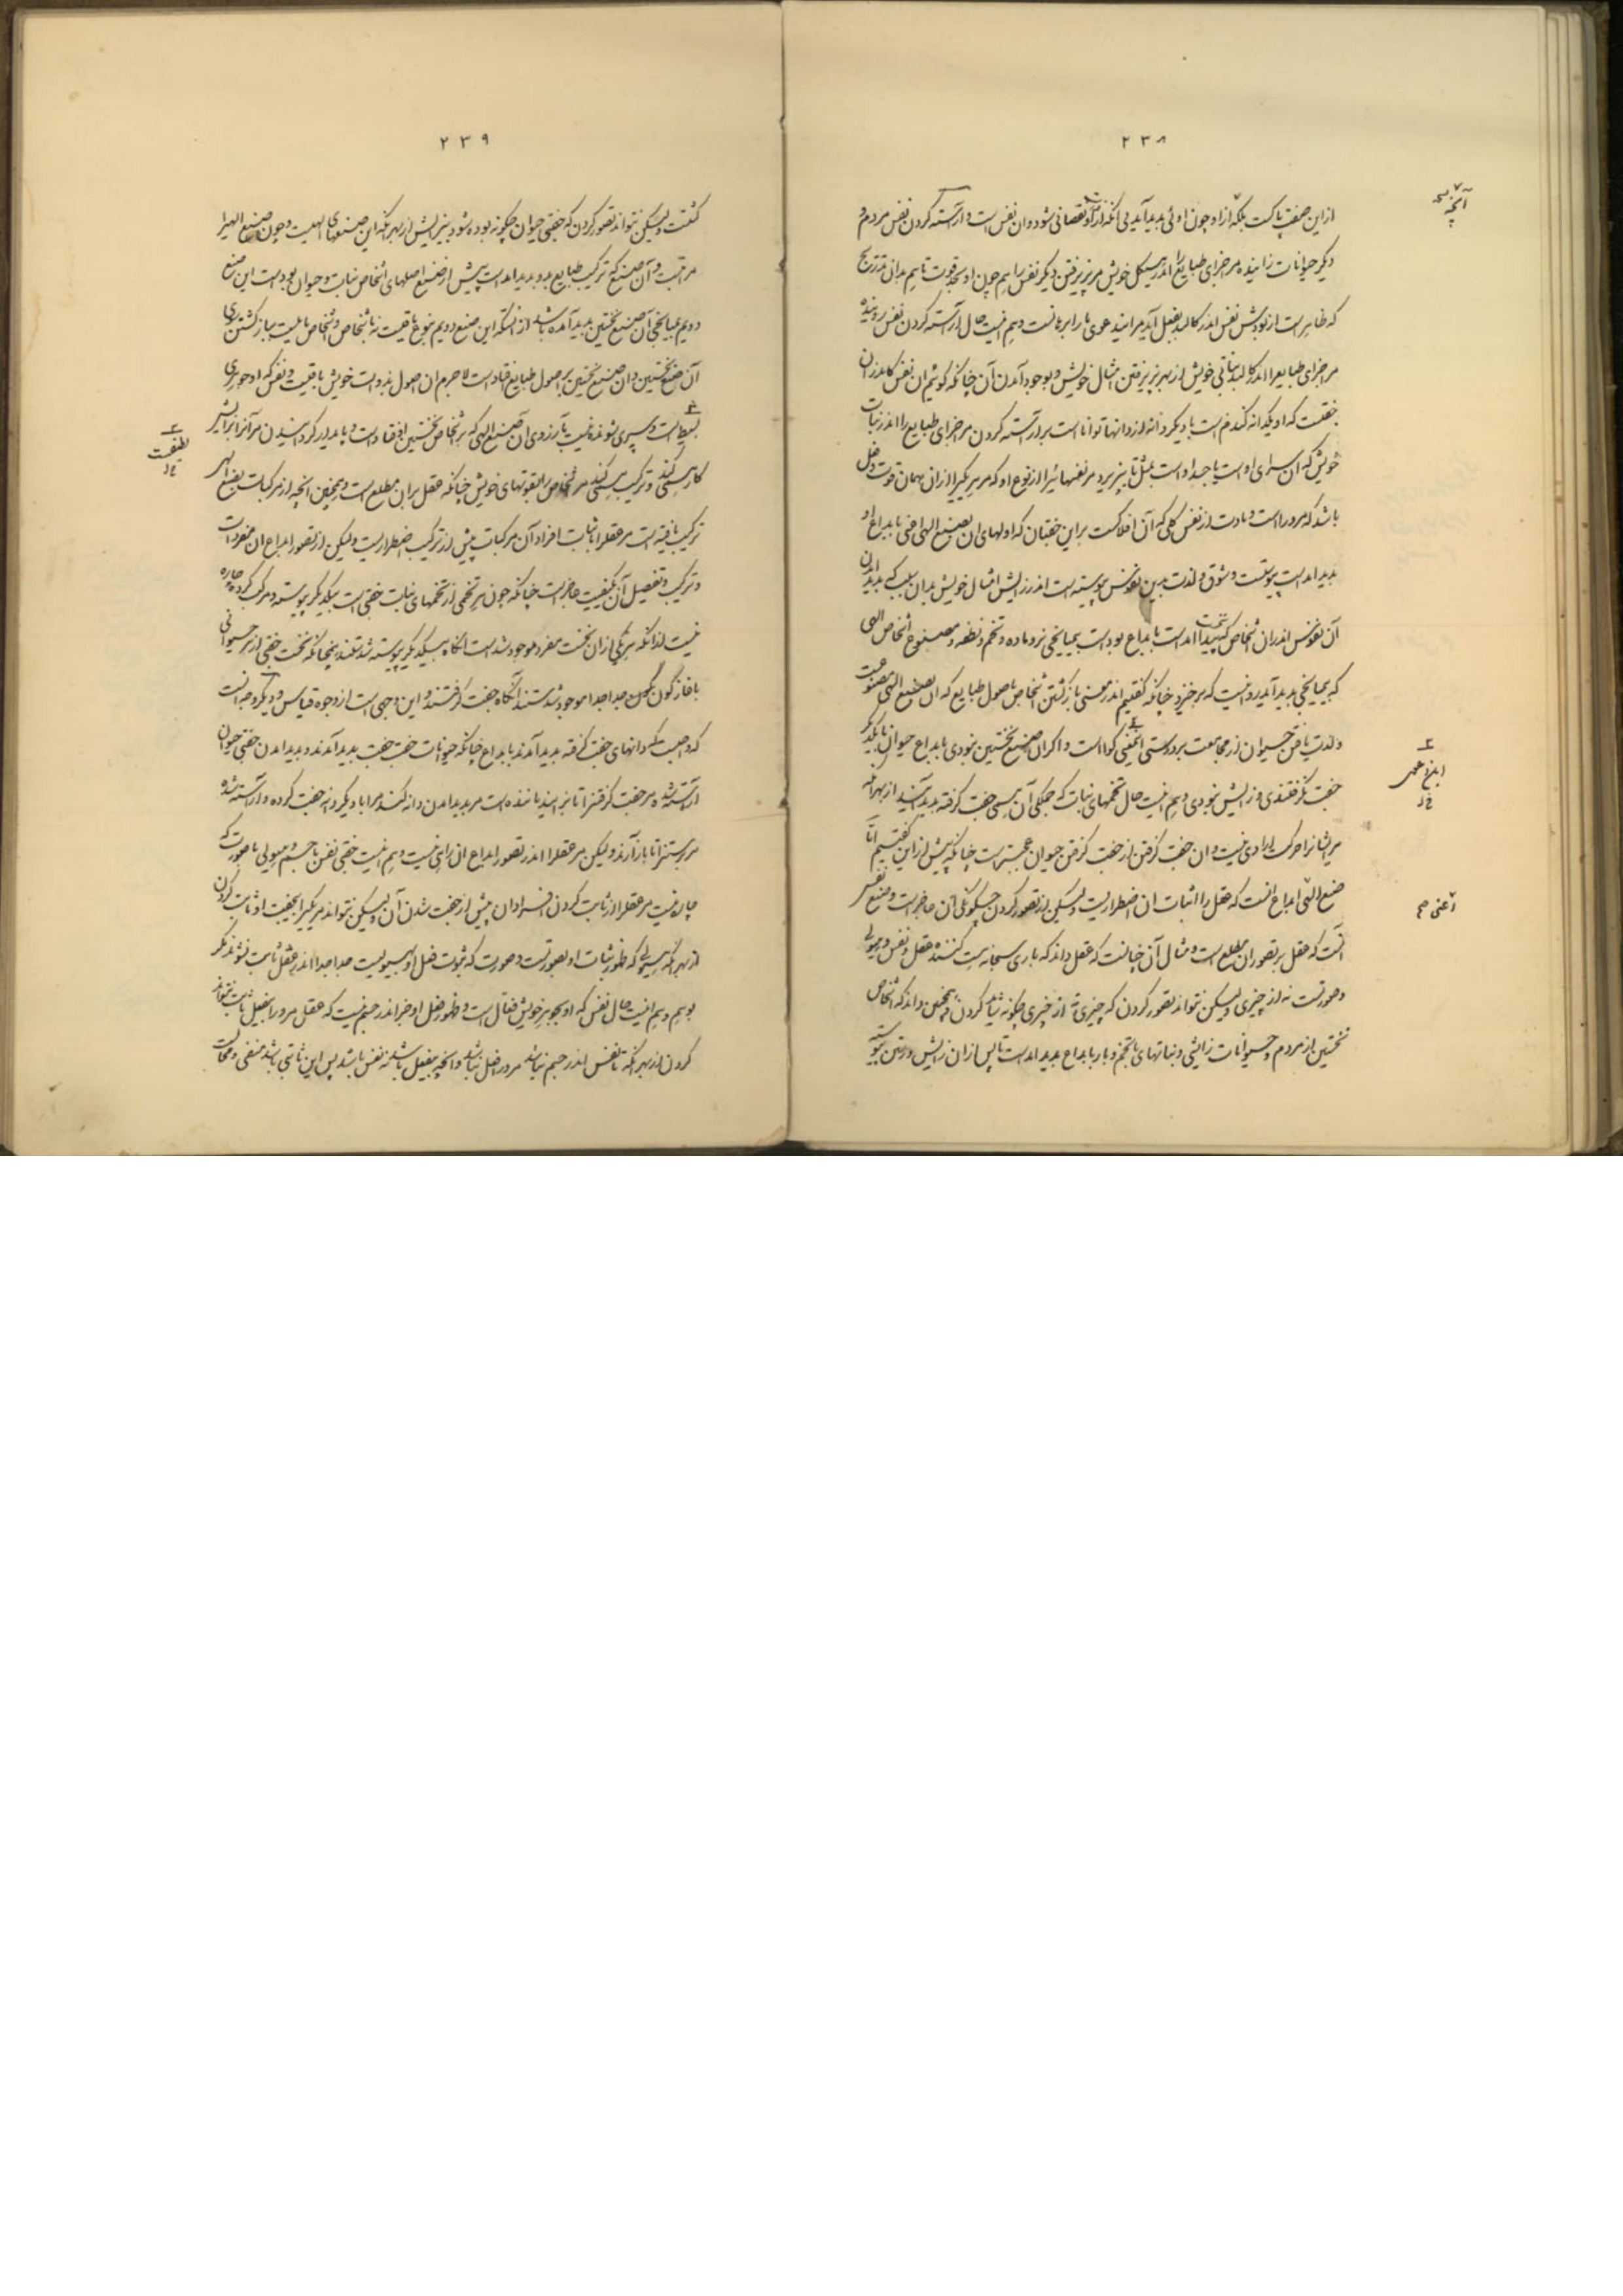 ۲۳۸
از این صفت پاکست بلکه از او چون اوئی بدید آید بی آنکه از او نقصانی شود و ان نفس است و آراسته کردن نفس مردم و
دیگر حیوانات زاینده مر اجزای طبایع را اندر هیکل خویش مر پذیرفتن دیگر نفس را هم چون او بحد قوت تا هم بدان تدریج
که ظاهر است از بودش نفس اندر کالبد بفعل آید مر ایند عوی ما را برهانست و هم اینست حال آراسته کردن نفس روینده
مر اجزای طبایع را اندر کالبد نباتی خویش از بهر پذیرفتن امثال خویش و بوجود آمدن آن چنانکه گوئیم ان نفس کاندران
جفتست که او یکدانه گندم است با دیگر دانه از دانها توانا است بر آراسته کردن مر اجزای طبایع را اندر نبات
خویش که ان سرای او است یا جسد او است بمثل تا بپذیرد مر نفسهائیرا از نوع او که مر هر یکیرا از ان همان قوت و فعل
باشد که مرو را است و مادت از نفس کلی که آن افلاکست بر این جفتان که اولهای ان بصنع الهی اعنی بابداع او
بدید امده است پیوستست و شوق و لذت بدین نفوس پیوسته است اندر زایش امثال خویش بدان سبب که بدید امدن
آن نفوس اندران اشخاص که پیدا امده است بابداع بوده است بمیانجی نر و ماده و تخم و نطفه و مصنوع اشخاص الهی
که بمیانجی بدید آید روا نیست که بر خیزد چنانکه گفتیم اندر معنی باز گشتن اشخاص باصول طبایع که ان بصنع الهی مصنوعست
و لذت یافتن حیوان از مجامعت بر درستی اینمعنی گوا است و اگر ان صنع نخستین نبودی بابداع حیوان با یکدیگر
جفت نگرفتندی و زایش نبودی و هم اینست حال تخمهای نبات که جملگی آن همی جفت گرفته بدید آیند از بهر انکه
مر ایشانرا حرکت ارادی نیست و ان جفت گرفتن از جفت گرفتن حیوان عجبتر است چنانکه پیش از این گفتیم امّا
صنع الهی ابداع انست که عقل را اثبات ان اضطراریست ولیکن از تصور کردن چگونگی ان عاجز است و صنع نفس
آنست که عقل بر تصور ان مطلع است و مثال آن چنانست که عقل داند که باری سبحانه هست کننده عقل و نفس و هیولی
و صورتست نه از چیزی ولیکن نتواند تصور کردن که چیزی نه از چیزی چگونه شاید کردن و همچنین داند که اشخاص
نخستین از مردم و حیوانات زایشی و نباتهای با تخم و بار بابداع بدید امده است تا پس از ان زایش و رستن پیوسته
آنچه
اعنی
۲۳۹
گشتست ولیکن نتواند تصور کردن که جفتی حیوان چگونه بوده شود بیزایش از بهر انکه این صنعهای الهیست و چون صنع الهیرا
مراتبست و آن صنع که ترکیب طبایع بدو بدید امده است پیش از صنع اصلهای اشخاص نبات و حیوان بوده است این صنع
دویم بمیانجی آن صنع نخستین بدید آمده باشد از انست که این صنع دویم بنوع باقیست نه باشخاص و اشخاص مایلست بباز گشتن سوی
آن صنع نخستین و ان صنع نخستین بر اصول طبایع فتاده است لا جرم ان اصول بذوات خویش باقیست و نفس که او جوهری
بسیط است و سپری شونده نیست بآرزوی ان صنع الهی که بر اشخاص نخستین افتاده است و پایدار گردانیدن مر آنرا بزایش
کار همی کند و ترکیب همی کند مر اشخاص را بقوتهای خویش چنانکه عقل بران مطلع است و همچنین آنچه از مرکبات بصنع الهی
ترکیب یافته است مر عقلرا اثبات افراد آن مرکبات پیش از ترکیب اضطراریست ولیکن از تصور ابداع ان مفردات
و ترکیب و تفصیل آن بکیفیت عاجز است چنانکه چون هر تخمی از تخمهای نبات جفتی است بیکدیگر پیوسته و مرکب کرده چاره
نیست از انکه هر یکی از ان نخست مفرد موجود شده است انگاه بیکدیگر پیوسته شدستند همچنانکه نخست جفتی از هر حیوانی
باغاز کون جدا جدا موجود شدستند آنگاه جفت گرفتند و این وجهی است از وجوه قیاس و دیگر وجه انست
که واجبست که دانهای جفت گرفته بدید آمدند بابداع چنانکه حیوانات جفت جفت بدید آمدند و بدید امدن جفتی حیوان
آراسته شده مر جفت گرفتنرا تا بزایند ماننده است مر بدید امدن دانه گندم را با دیگر دانه جفت کرده و آراسته شده
مر رستنرا تا بار آرند ولیکن مر عقلرا اندر تصور ابداع ان راهی نیست و هم اینست جفتی نفس با جسم و هیولی با صورت که
چاره نیست مر عقلرا از ثابت کردن افراد ان پیش از جفت شدن آن ولیکن نتواند مر یکیرا بیجفت او ثابت کردن
از بهر انکه هیولی که ظهور ثبات او بصورتست و صورت که ثبوت فعل او بهیولیست جدا جدا اندر عقل ثابت نشوند مگر
بوهم و هم اینست حال نفس که او بجوهر خویش فعال است و ظهور فعل او جز اندر جسم نیست که عقل مرو را بفعل ثابت نتواند
کردن از بهر انکه تا نفس اندر جسم نباشد مرو را فعل نباشد و انچه بیفعل باشد نه نفس باشد پس این ثابتی باشد منفی و محالست